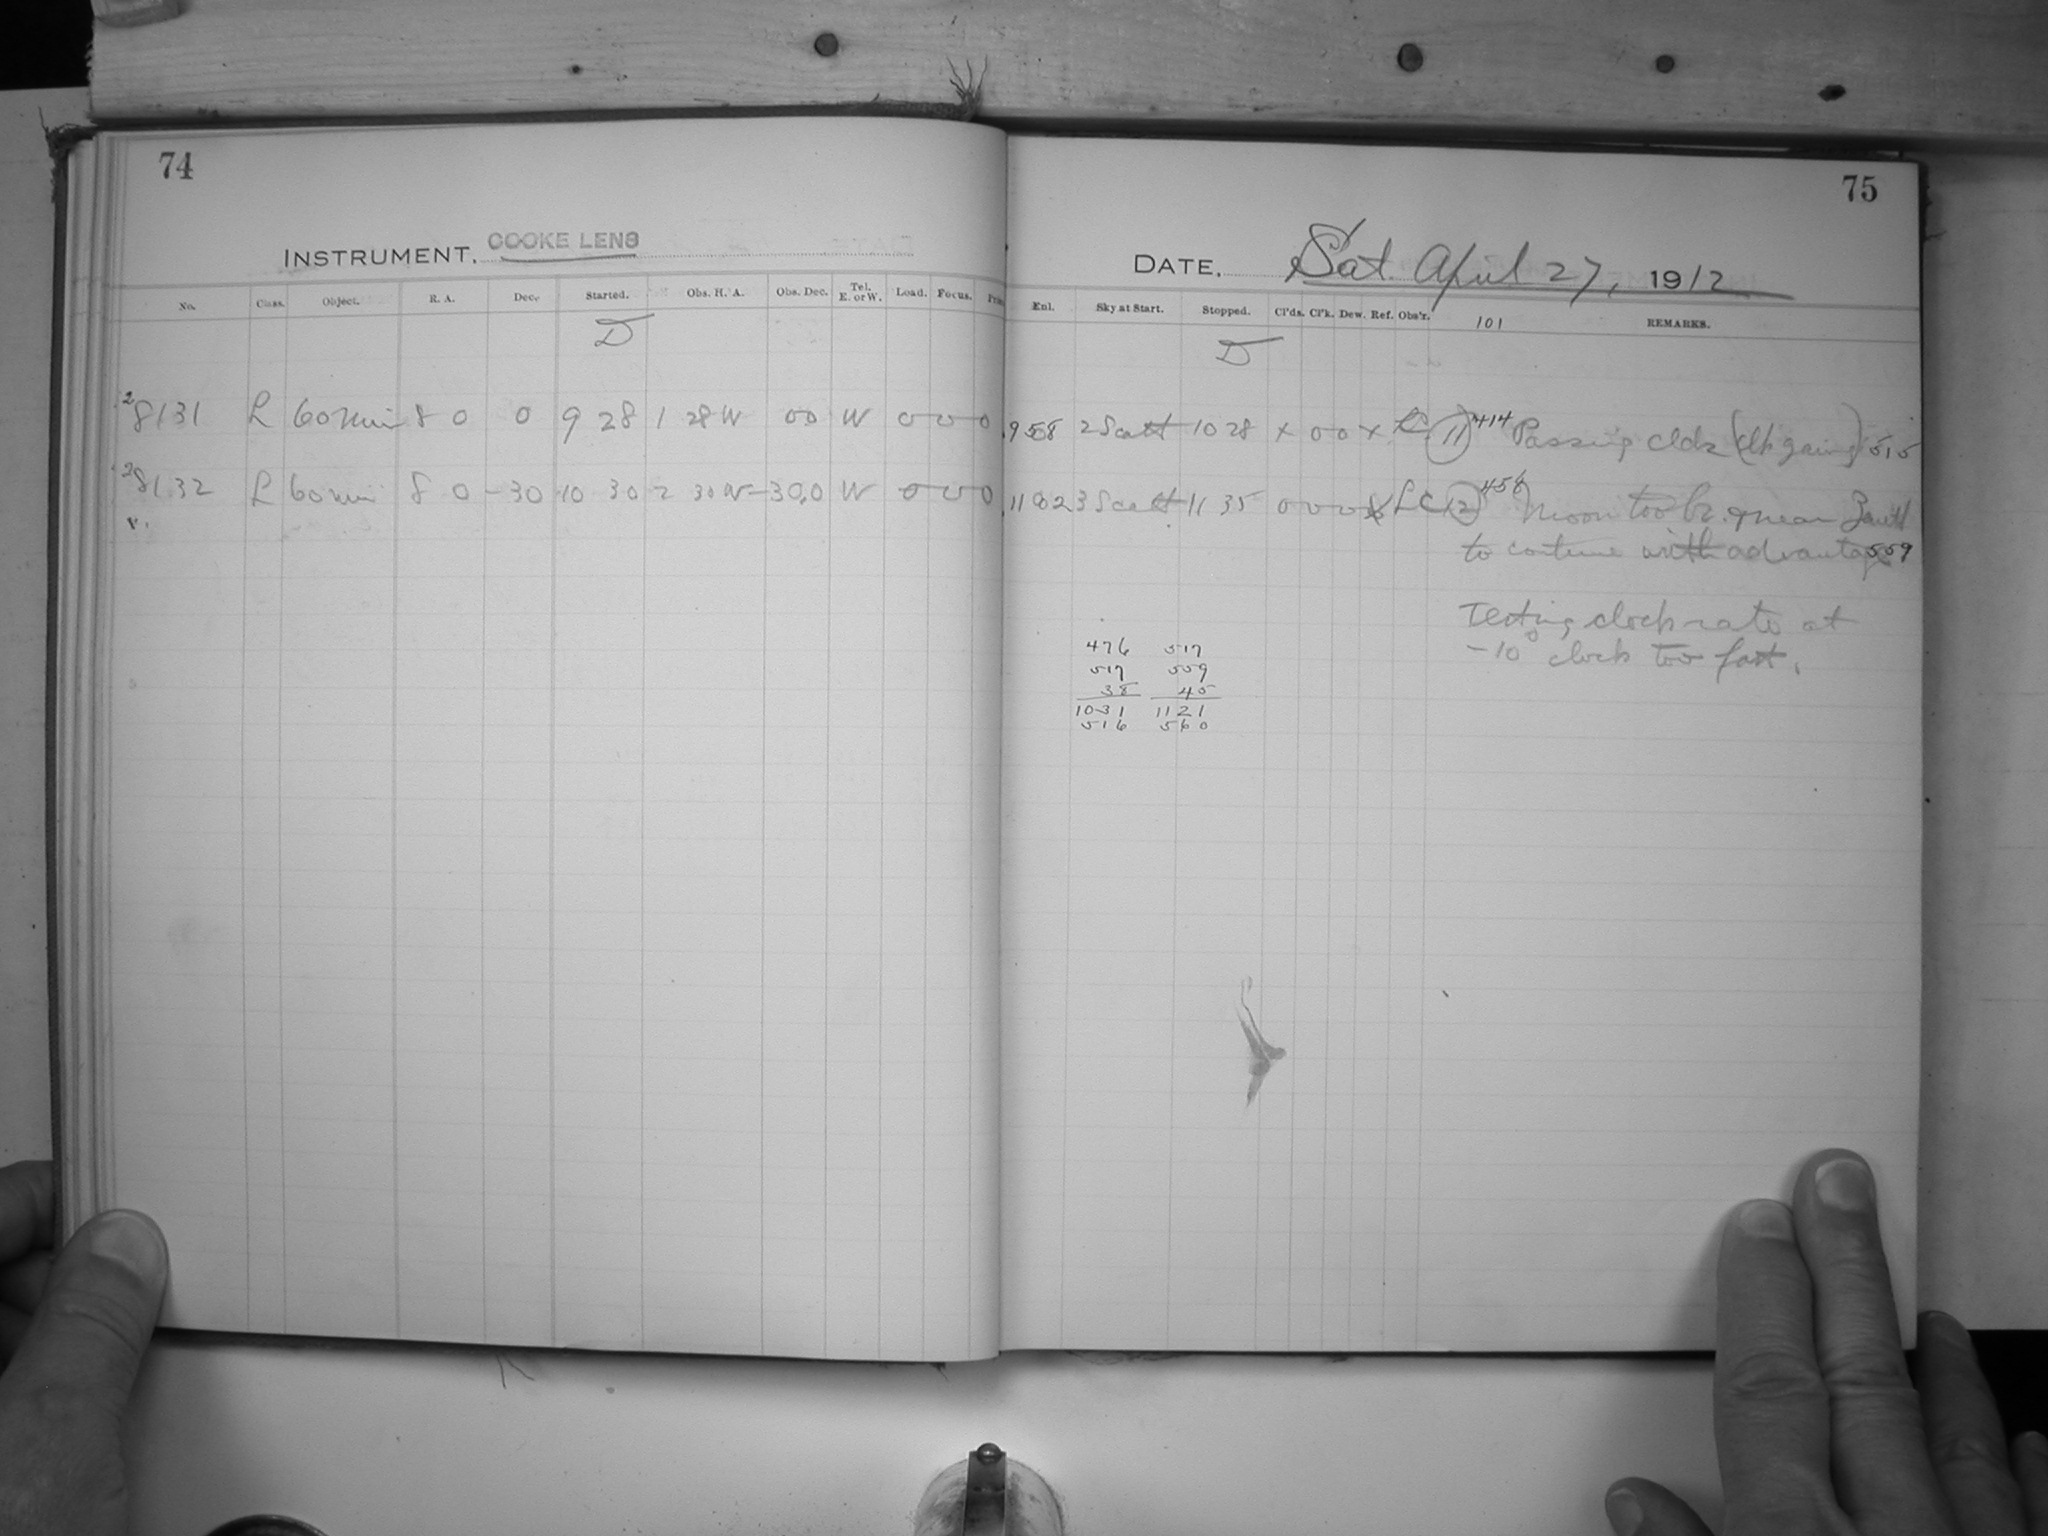 74
INSTRUMENT. COOKE LENS
No. Class. Object. R. A. Dec. Started. Obs. H. A. Obs. Dec. Tel. E. or W. Load. Focus.
D
28131 L 60 min 8 0 0 9 28 1 28 W 00 W 0 0 0
28132 L 60 min 8 0 -30 10 30 2 30 W -30,0 W 0 0 0
v.
75
DATE. Sat. April 27, 1912
Enl. Sky at Start. Stopped. Cl'ds. Cl'k. Dew. Ref. Obs'r. 101 REMARKS.
D
9 58 2 Scatt 10 28 x 0 0 x LC 11 414 Passing clds (clk gaing) 515
11 02 3 Scatt 11 35 0 0 0 x LC 12 458 Moon too br. & near Zenith
to continue with advantage 559
Testing clock rate at
-10° clock too fast.
476 517
517 559
38 45
1031 1121
516 560